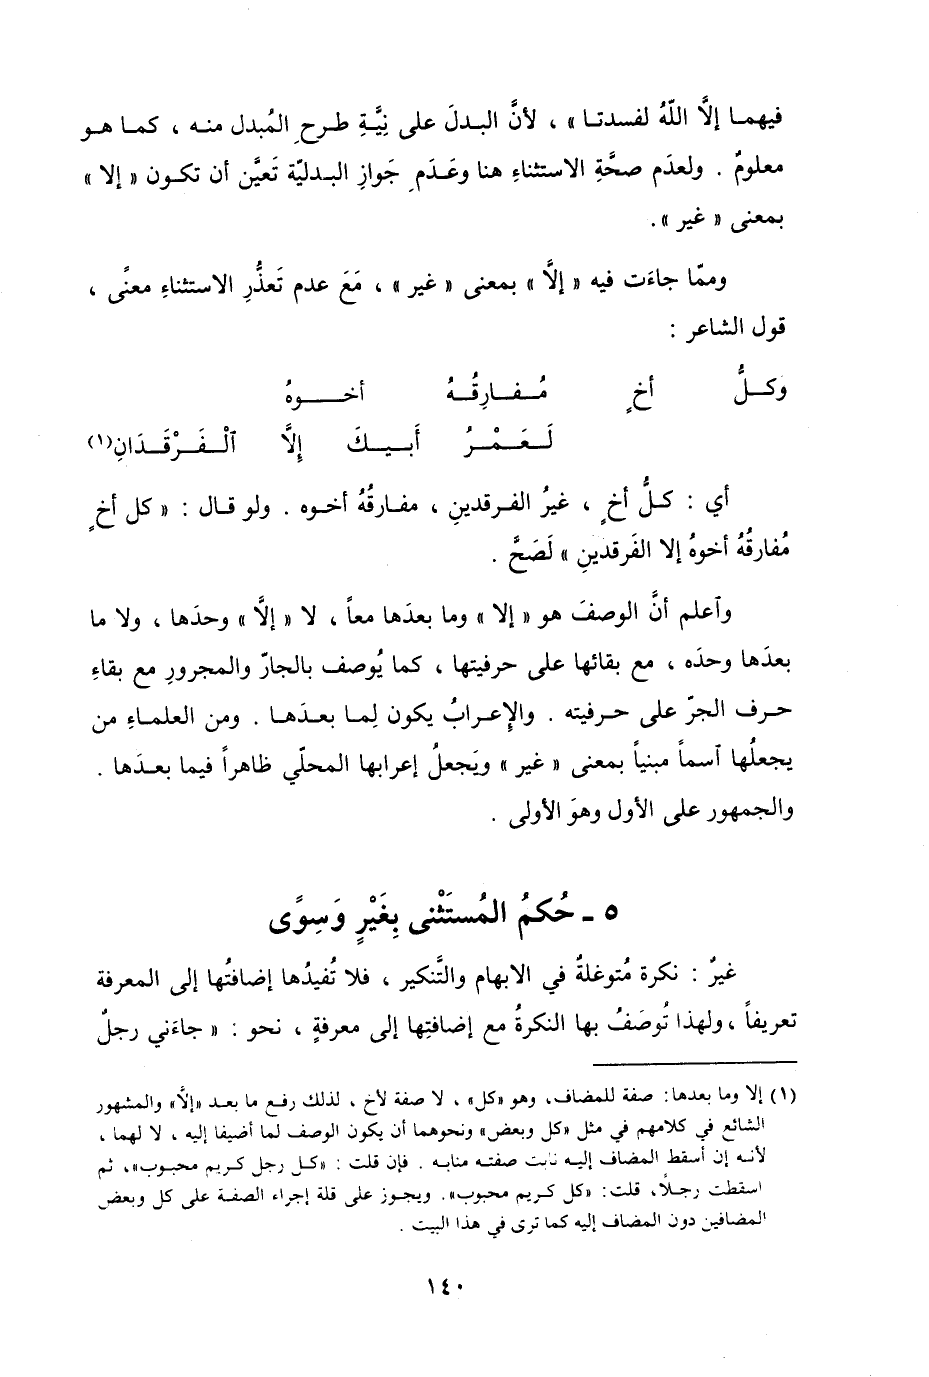 فيهمـا إلَّا اللّهُ لفسدتـا » ، لأنَّ البـدلَ علـى نِيَّةِ طـرحِ المُبدل منـه ، كمـا هـو
معلومٌ . ولعدَم صحَّةِ الاستثناءِ هنا وعَـدَمِ جَوازِ البـدليّة تَعيَّن أن تكـون « إلا »
بمعنى « غير ».
وممّا جاءَت فيه « إلَّا » بمعنى « غير » ، مَعَ عدم تَعذُّرِ الاستثناءِ معنًى ،
قول الشاعر :
وكـلُّ أخٍ مُـفـارِقُـهُ أخـــوهُ
لَـعَـمْـرُ أَبـيـكَ إلَّا ٱلْـفَـرْقَـدَانِ(١)
أي : كـلُّ أخٍ ، غيرُ الفـرقدينِ ، مفـارقُهُ أخـوه . ولو قـال : « كل أخٍ
مُفارقُهُ أخوهُ إلا الفَرقدينِ » لَصَحَّ .
وٱعلم أنَّ الوصفَ هو « إلا » وما بعدَها معاً ، لا « إلَّا » وحدَها ، ولا ما
بعدَها وحدَه ، مع بقائها على حرفيتها ، كما يُوصف بالجارّ والمجرورِ مع بقاءِ
حـرف الجرّ علـى حـرفيته . والإعـرابُ يكون لِمـا بعـدَهـا . ومن العلمـاءِ من
يجعلُها ٱسماً مبنياً بمعنى « غير » ويَجعلُ إعرابها المحلّي ظاهراً فيما بعـدَها .
والجمهور على الأول وهوَ الأولى .
٥ ـ حُكمُ المُستَثْنى بِغَيْرٍ وَسِوًى
غيرُ : نكرة مُتوغلةٌ في الابهام والتَّنكير ، فلا تُفيدُها إضافتُها إلى المعرفة
تعريفاً ، ولهذا تُوصَفُ بها النكرةُ مع إضافتِها إلى معرفةٍ ، نحو : « جاءَني رجلٌ
(١) إلا وما بعدها: صفة للمضاف، وهو «كل» ، لا صفة لأخ ، لذلك رفع ما بعد «إلَّا» والمشهور
الشائع في كلامهم في مثل «كل وبعض» ونحوهما أن يكون الوصف لما أضيفا إليه ، لا لهما ،
لأنـه إن أسقط المضاف إليـه نابت صفتـه منابـه . فإن قلت : «كـل رجل كـريم محبوب»، ثم
اسقطت رجـلًا، قلت: «كل كـريم محبوب». ويجـوز على قلة إجراء الصفـة على كل وبعض
المضافين دون المضاف إليه كما ترى في هذا البيت .
١٤٠